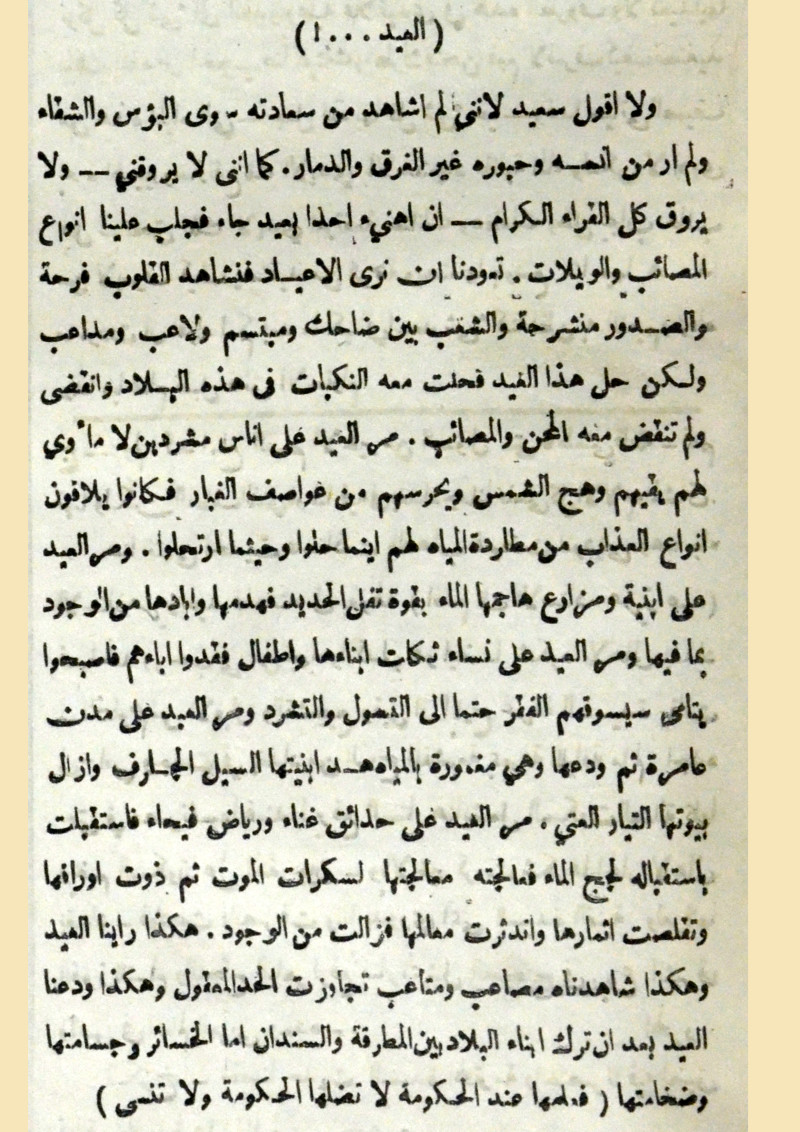 ( العيد . . . ! )
ولا اقول سعيد لانني لم اشاهد من سعادته سوى البؤس والشقاء
ولم ار من انسه وحبوره غير الغرق والدمار. كما اننى لا يروقني -- ولا
يروق كل القراء الكرام — ان اهنيء احدا بعيد جاء فجلب علينا انواع
المصائب والويلات . تعودنا ان نرى الاعياد فنشاهد القلوب فرحة
والصدور منشرحة والشعب بين ضاحك ومبتسم ولاعب ومداعب
ولكن حل هذا العيد فحلت معه النكبات فى هذه البلاد وانقضى
ولم تنقض معه المحن والمصائب . مر العيد على اناس مشردين لا مأوي
لهم يقيهم وهج الشمس ويحرسهم من عواصف الغبار فكانوا يلاقون
انواع العذاب من مطاردة المياه لهم اينما حلوا وحيثما ارتحلوا . ومر العيد
على ابنية ومزارع هاجمها الماء بقوة تفل الحديد فهدمها وابادها من الوجود
بما فيها ومر العيد على نساء ثكلت ابناءها واطفال فقدوا اباءهم فاصبحوا
يتامى سيسوقهم الفقر حتما الى التسول والتشرد ومر العيد على مدن
عامرة ثم ودعها وهي مغمورة بالمياه هد ابنيتها السيل الجارف وازال
بيوتها التيار العتي ، مر العيد على حدائق غناء ورياض فيحاء فاستقبلت
باستقباله لجج الماء فعالجته معالجتها لسكرات الموت ثم ذوت اوراقها
وتقلصت اثمارها واندثرت معالمها فزالت من الوجود . هكذا راينا العيد
وهكذا شاهدناه مصاعب ومتاعب تجاوزت الحد المعقول وهكذا ودعنا
العيد بعد ان ترك ابناء البلاد بين المطرقة والسندان اما الخسائر وجسامتها
وضخامتها ( فعلمها عند الحكومة لا تضلها الحكومة ولا تنسى )